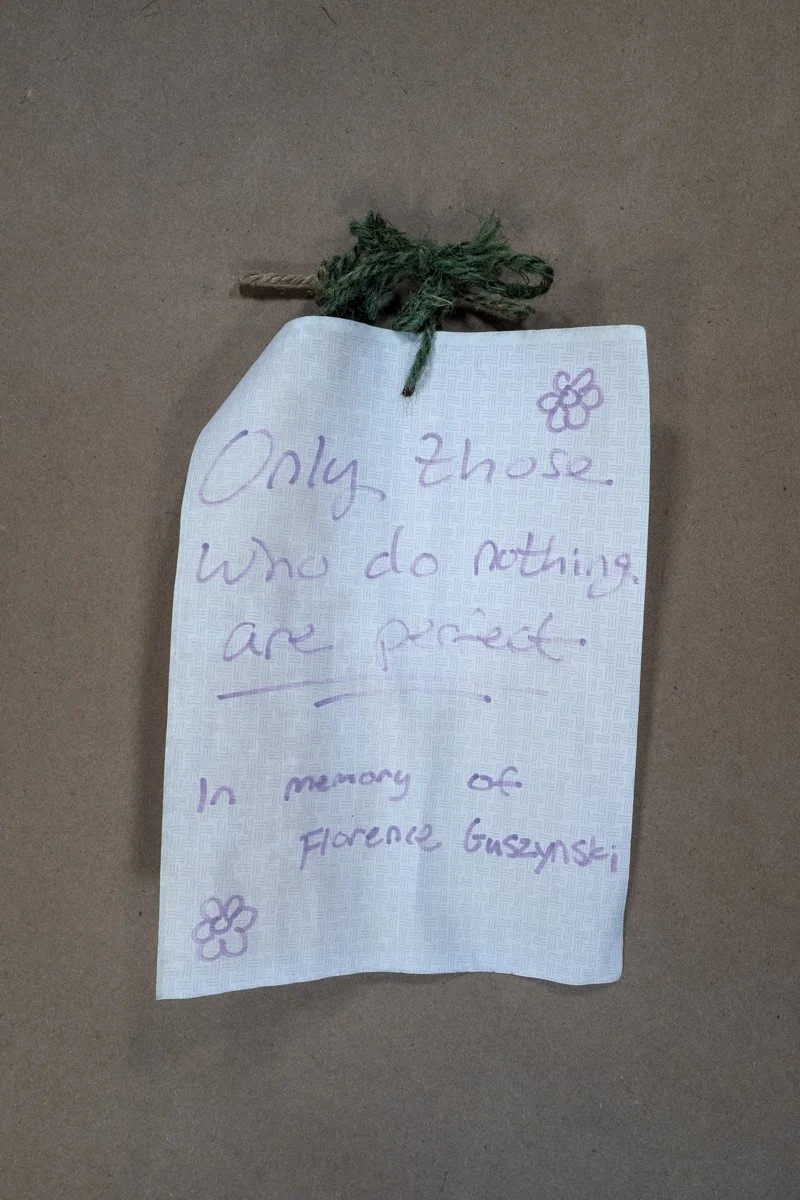 Only those
who do nothing
are perfect.
In memory of
Florence Guszynski